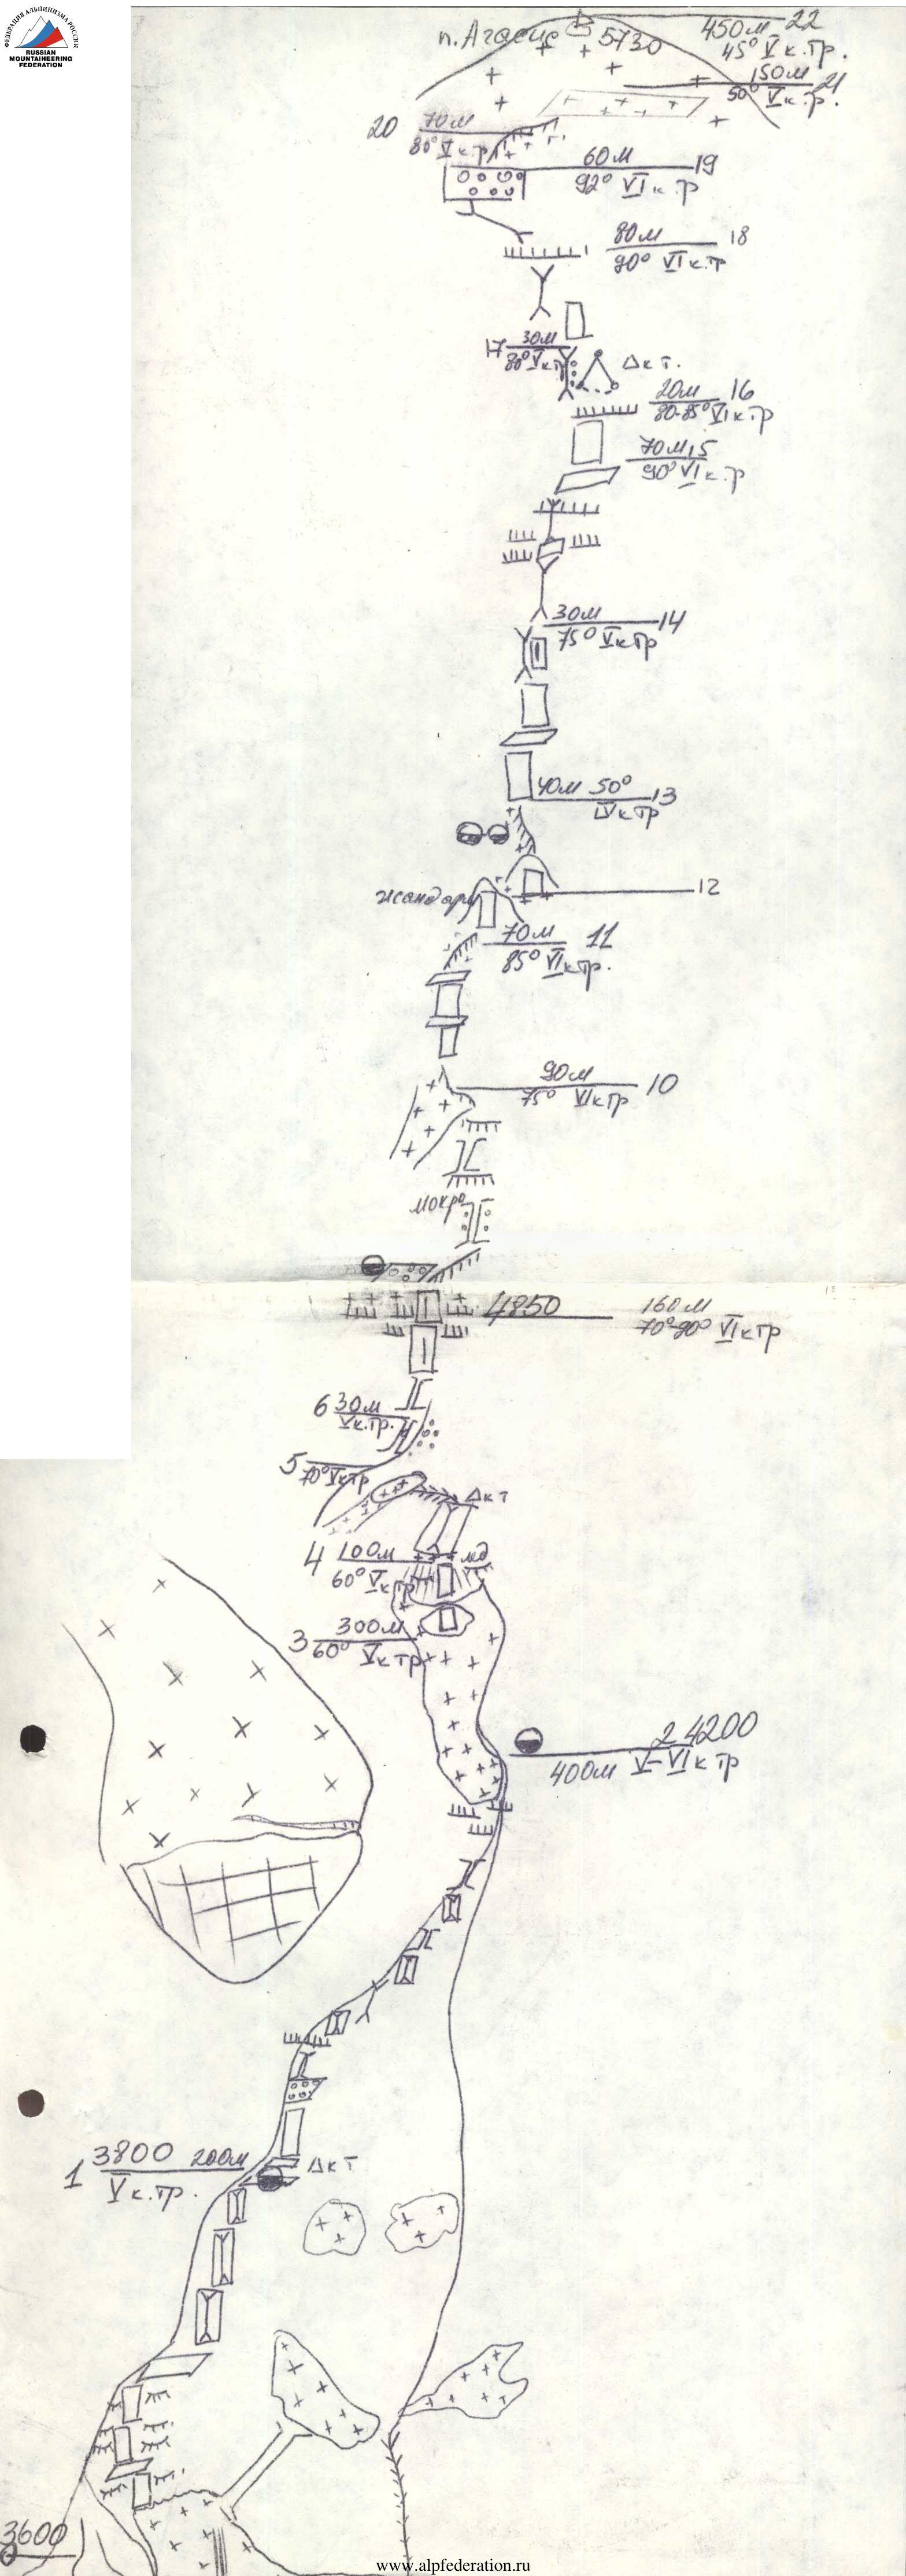 ФЕДЕРАЦИЯ АЛЬПИНИЗМА РОССИИ
RUSSIAN
MOUNTAINEERING
FEDERATION
п. Агассис 5730
450м 22
45° V к.тр.
150м 21
50° V к.тр.
20 70м
80° V к.тр
60м 19
92° VI к.тр
80м 18
90° VI к.тр
17 30м
80° V к.тр
Δ к т.
20м 16
80-85° VI к тр
70м 15
90° VI к.тр
30м 14
75° V к тр
40м 50° 13
IV к тр
12
жандарм
70м 11
85° VI к тр.
90м 10
75° VI к тр
мокро
4850 160м
70°-90° VI к тр
6 30м
V к.тр.
5
70° V к тр
Δ к т
4 100м
60° V к тр
лед
3 300м
60° V к тр
2 4200
400м V-VI к тр
1 3800 200м
V к.тр.
Δ к т
3600
www.alpfederation.ru